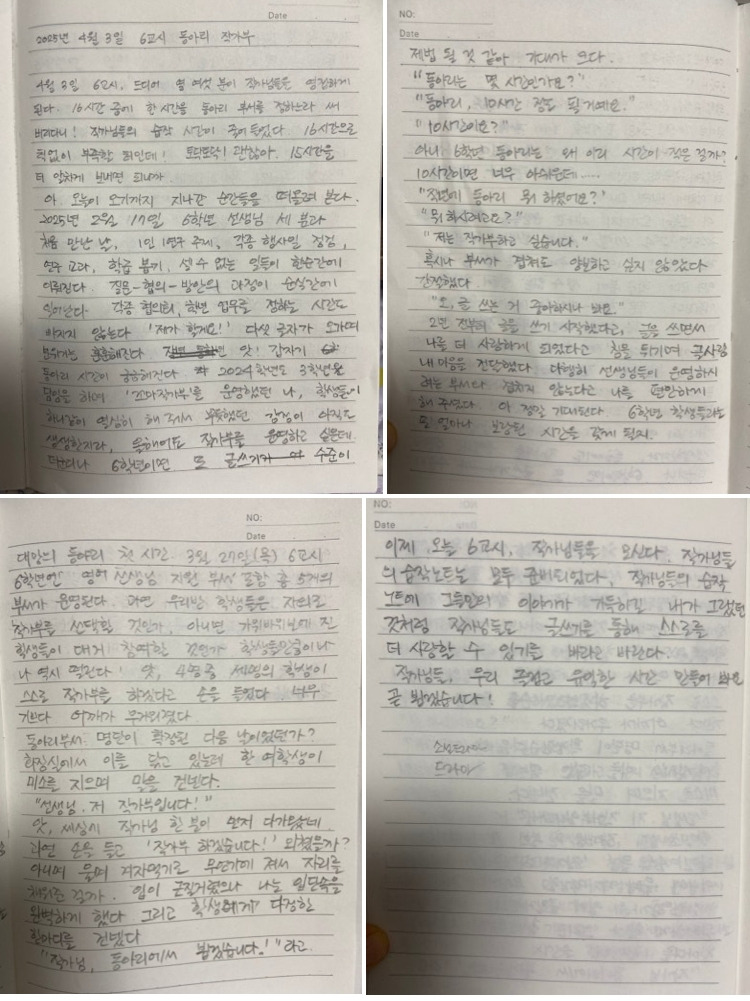 Date
2025년 4월 3일 6교시 동아리 작가부
4월 3일 6교시. 드디어 열 여섯 분의 작가님들을 영접하게
된다. 16시간 중에 한 시간을 동아리 부서를 정하느라 써
버리다니! 작가님들의 습작 시간이 줄어 들었다 16시간으로
턱없이 부족할 터인데! 토닥토닥! 괜찮아. 15시간을
더 알차게 보내면 되니까
아 오늘이 오기까지 지나간 순간들을 떠올려 본다.
2025년 2월 17일 6학년 선생님 세 분과
처음 만난 날, 1인 1연구 주제, 각종 행사일 점검,
연구 교과, 학급 뽑기, 셀 수 없는 일들이 한순간에
이뤄진다. 질문-협의-방안의 과정이 순식간에
일어난다. 각종 협의회, 학년 업무를 정하는 시간도
빠지지 않는다 '제가 할게요!' 다섯 글자가 오가며
분위기는 훈훈해진다. 앗! 갑자기
동아리 시간이 궁금해진다 2024학년도 3학년
담임을 하며 '꼬마작가부'를 운영했던 나, 학생들이
하나같이 열심히 해 주어서 뿌듯했던 감정이 아직도
생생한지라, 올해에도 작가부를 운영하고 싶은데
더더나 6학년이면 또 글쓰기가 수준이
NO:
Date
제법 될 것 같아 기대가 크다.
"동아리는 몇 시간인가요?"
"동아리, 10시간 정도 될 거예요."
"10시간이요?"
아니 6학년 동아리는 왜 이리 시간이 적은 걸까?
10시간이면 너무 아쉬운데....
"작년에 동아리 뭐 하셨어요?"
"뭐 하시려고요?"
"저는 작가부하고 싶습니다."
혹시나 부서가 겹쳐도 양보하고 싶지 않았다
간절했다
"오, 글 쓰는 거 좋아하시나 봐요."
2년 전부터 글을 쓰기 시작했다고, 글을 쓰면서
나를 더 사랑하게 되었다고 침을 튀기며 글사랑
내 마음을 전달했다. 다행히 선생님들이 운영하시
려는 부서와 겹치지 않는다고 나를 편안하게
해 주었다. 아 정말 기대된다. 6학년 학생들과는
또 얼마나 보람된 시간을 갖게 될지.
NO:
Date
대망의 동아리 첫 시간. 3월 27일(목) 6교시
6학년엔 영어 선생님 지원 부서 포함 총 5개의
부서가 운영된다. 과연 우리반 학생들은 자의로
작가부를 선택할 것인가, 아니면 가위바위보에 진
학생들이 대거 참여할 것인가 학생들만큼이나
나 역시 떨린다! 앗, 4명중 세명의 학생이
스스로 작가부를 하겠다고 손을 들었다. 너무
기쁘다 어깨가 무거워졌다
동아리부서 명단이 확정된 다음 날이었던가?
화장실에서 이를 닦고 있는데 한 여학생이
미소를 지으며 말을 건넨다.
"선생님. 저 작가부입니다!"
앗, 세상에 작가님 한 분이 먼저 다가왔네.
과연 손을 들고 '작가부 하겠습니다!' 외쳤을까?
아니면 울며 겨자먹기로 무언가에 져서 자리를
채워준 걸까. 입이 근질거렸으나 나는 입단속을
완벽하게 했다 그리고 학생에게 다정한
한마디를 건넸다
"작가님, 동아리에서 뵙겠습니다!"라고.
NO:
Date
이제 오늘 6교시, 작가님들을 모신다. 작가님들
의 습작노트는 모두 준비되었다, 작가님들의 습작
노트에 그들만의 이야기가 가득하길 내가 그랬던
것처럼 작가님들도 글쓰기를 통해 스스로를
더 사랑할 수 있기를 바라고 바란다.
작가님들, 우리 즐겁고 유익한 시간 만들어 봐요
곧 뵙겠습니다!
드라마